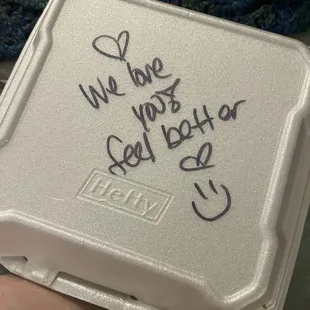 We love
you &
feel better
Hefty